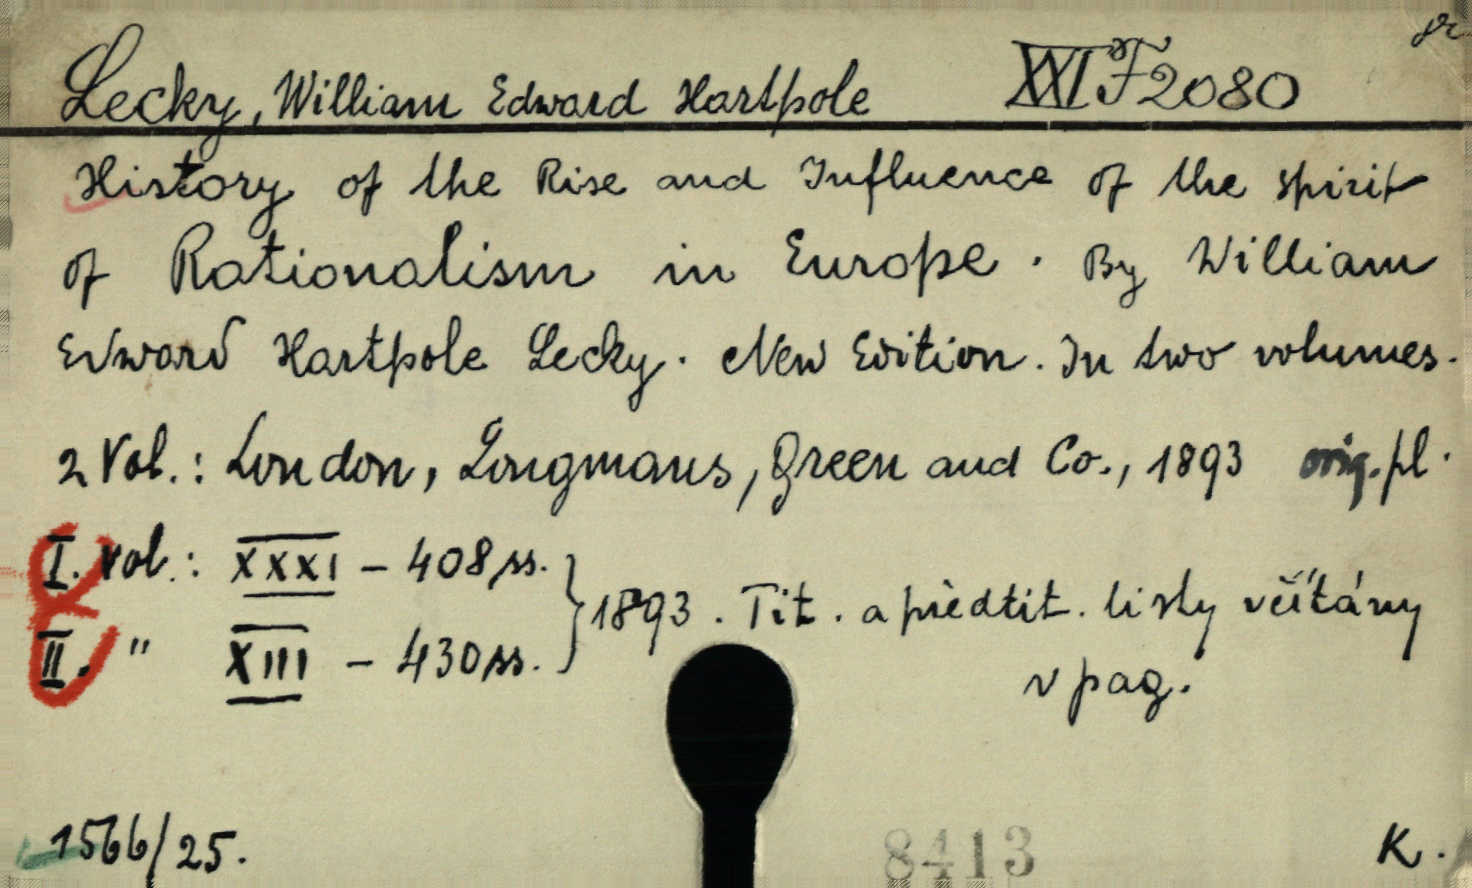 Lecky, William Edward Hartpole XXI F 2080
History of the Rise and Influence of the spirit
of Rationalism in Europe. By William
Edward Hartpole Lecky. New Edition. In two volumes.
2 Vol.: London, Longmans, Green and Co., 1893 orig. pl.
I. vol.: XXXI – 408 ss.
II. " XIII – 430 ss.
} 1893. Tit. a předtit. listy včítány
v pag.
1566/25.
8413
K.